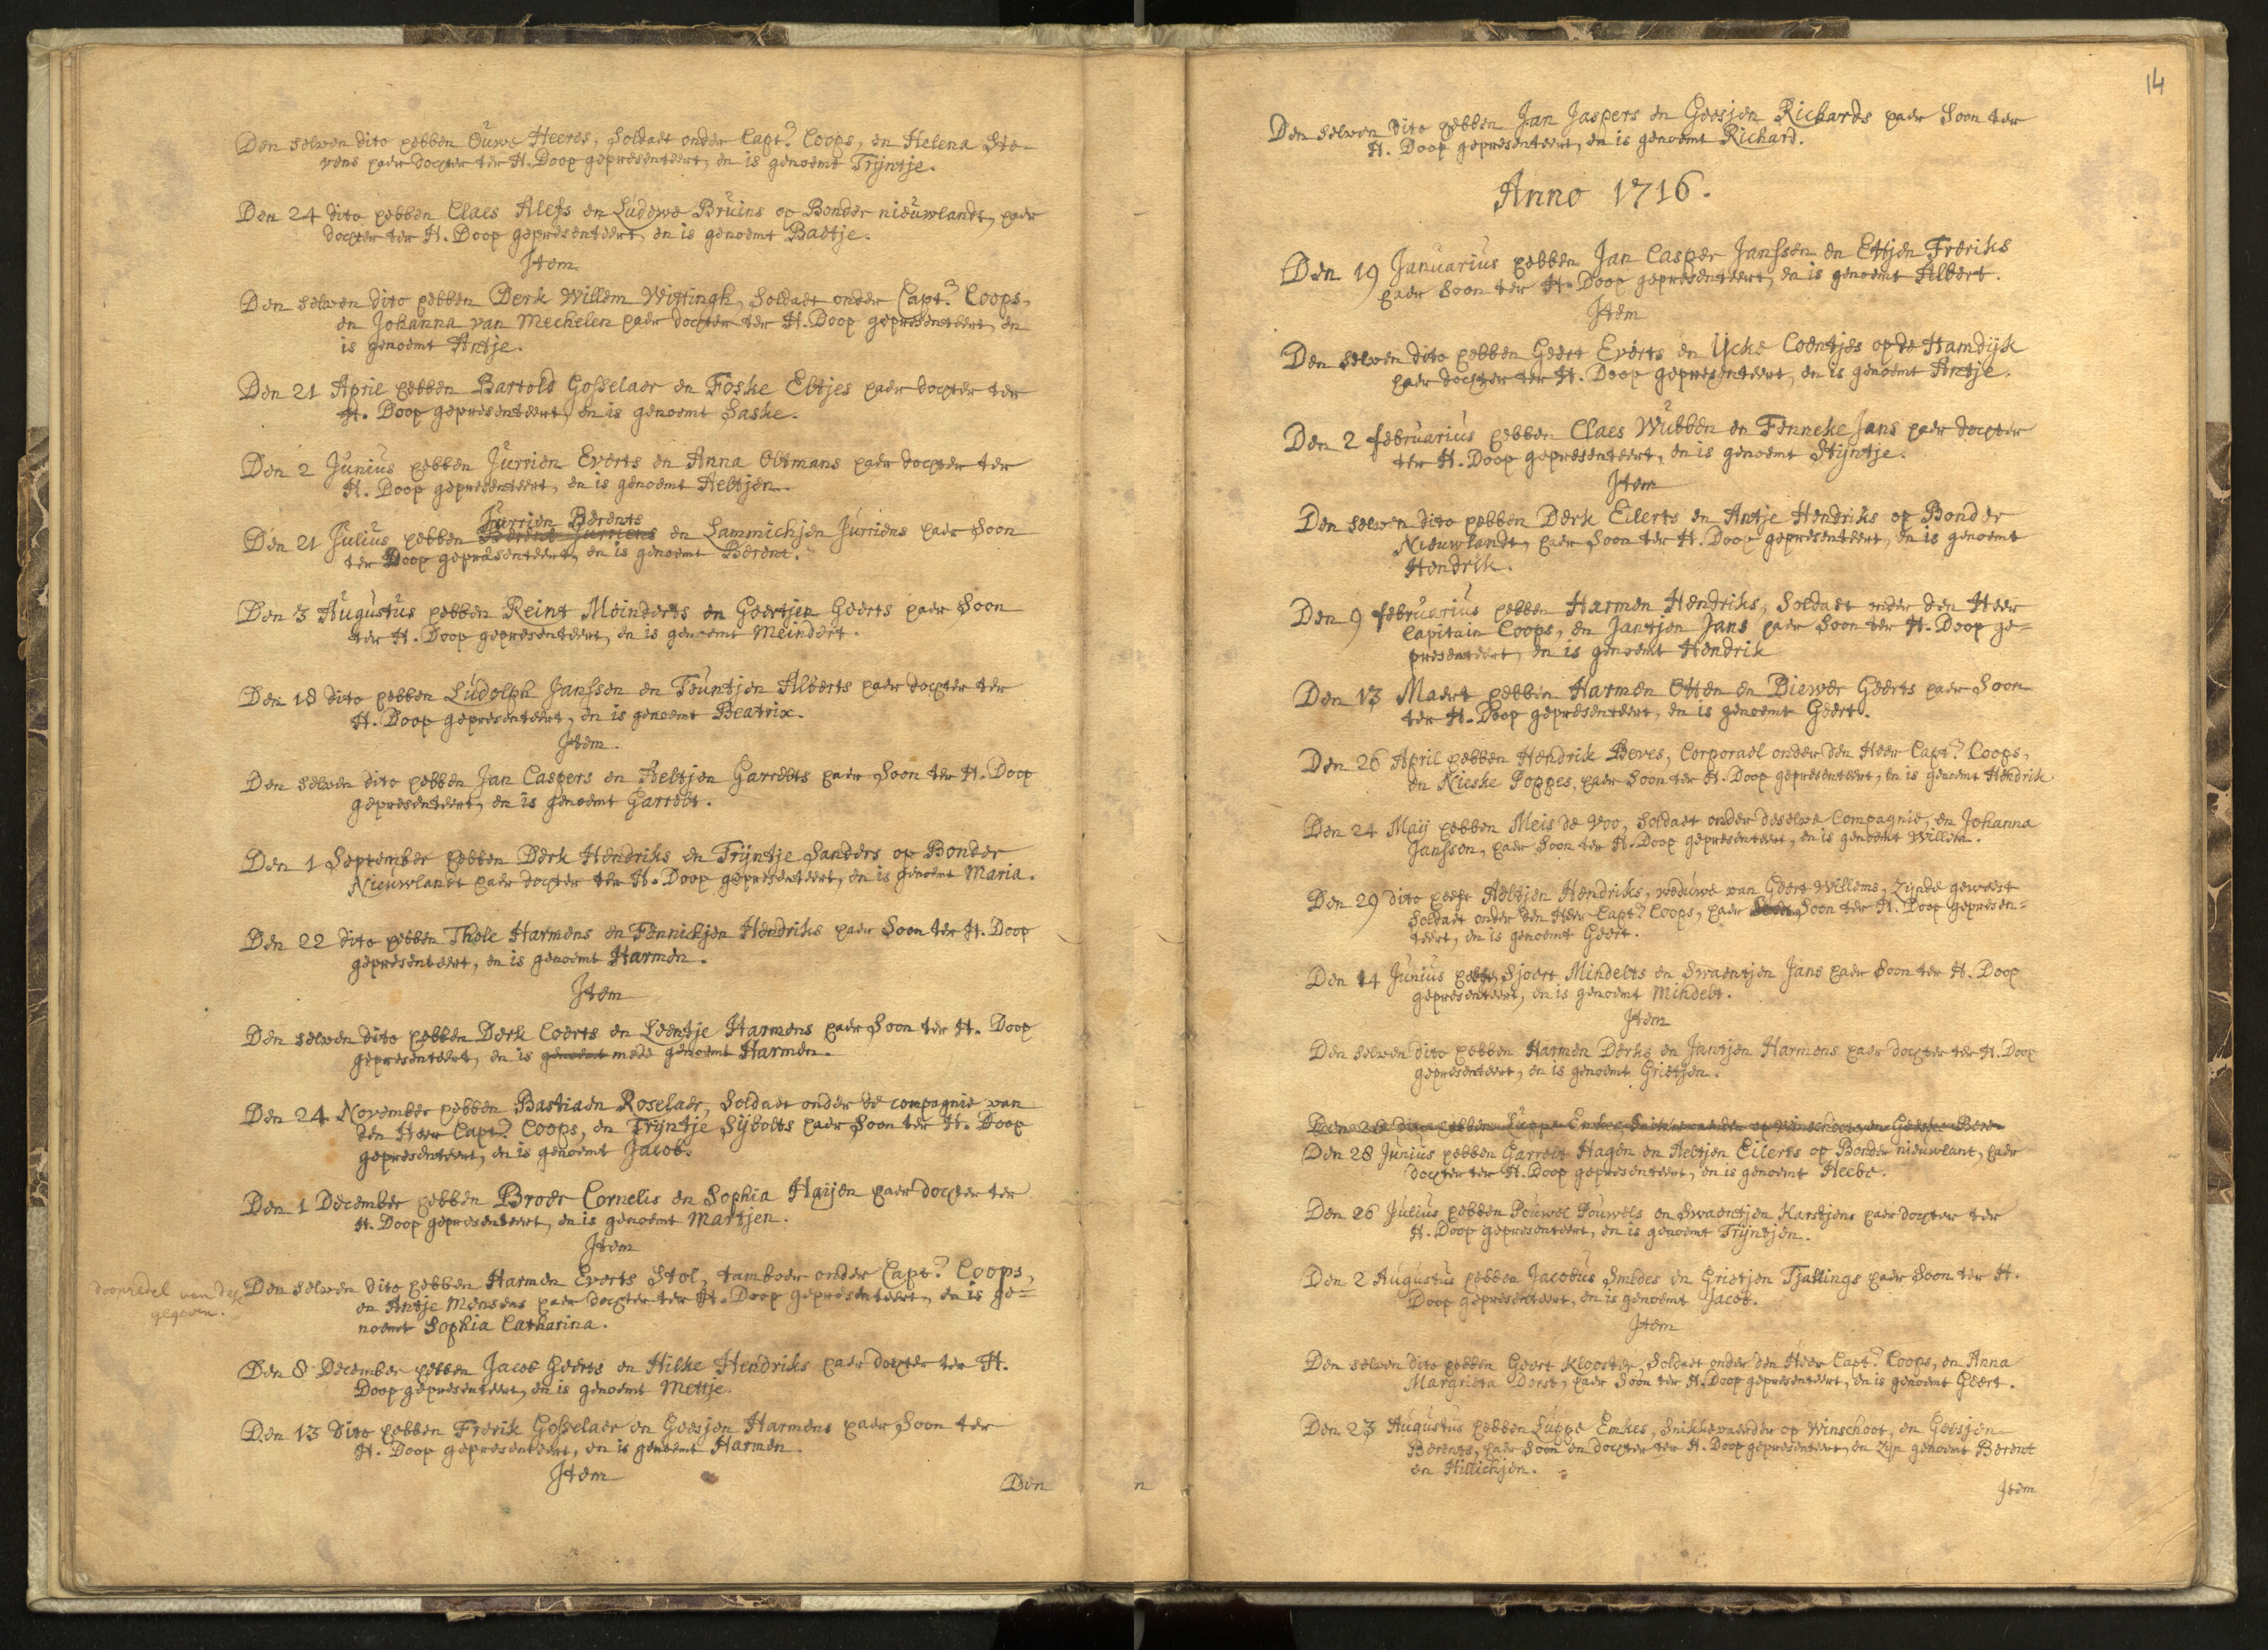 Den selven dito hebben Ouwe Heeres, Soldaet onder Capt? Coops, en Helena Ste-
vens haer dochter ter H. Doop gepresenteert, en is genoemt Trijntje.
Den 24 dito hebben Claes Alefs en Ludewe Bruins op Bonder nieuwlandt, haer
dochter ter H. Doop gepresenteert, en is genoemt Baetje.
Item
Den selven dito hebben Derk Willem Wittingh, Soldaet onder Capt? Coops,
en Johanna van Mechelen haer dochter ter H. Doop gepresenteert, en
is genoemt Antje.
Den 21 April hebben Bartold Gosselaer en Foske Ebtjes haer dochter ter
H. Doop gepresenteert, en is genoemt Saske.
Den 2 Junius hebben Jurrien Everts en Anna Oltmans haer dochter ter
H. Doop gepresenteert, en is genoemt Aeltjen.
Jurrien Berents
Den 21 Julius hebben Berent Jurriens en Lammichjen Jurriens haer Soon
ter Doop gepræsenteert, en is genoemt Berent.
Den 3 Augustus hebben Reint Meinderts en Geertjen Geerts haer Soon
ter H. Doop gepresenteert, en is genoemt Meindert.
Den 18 dito hebben Ludolph Janssen en Teuntjen Alberts haer dochter ter
H. Doop gepresenteert, en is genoemt Beatrix.
Item.
Den selven dito hebben Jan Caspers en Aeltjen Garrelts haer Soon ter H. Doop
gepresenteert, en is genoemt Garrelt.
Den 1 September hebben Derk Hendriks en Trijntje Sanders op Bonder
Nieuwlandt haer dochter ter H. Doop gepresenteert, en is genoemt Maria.
Den 22 dito hebben Thole Harmens en Fennichjen Hendriks haer Soon ter H. Doop
gepresenteert, en is genoemt Harmen.
Item
Den selven dito hebben Derk Coerts en Leentje Harmens haer Soon ter H. Doop
gepresenteert, en is genoemt mede genoemt Harmen.
Den 24 November hebben Bastiaen Roselaer, Soldaet onder de compagnie van
den Heer Capt? Coops, en Trijntje Sijbolts haer Soon ter H. Doop
gepresenteert, en is genoemt Jacob.
Den 1 December hebben Broer Cornelis en Sophia Haijen haer dochter ter
H. Doop gepresenteert, en is genoemt Martjen.
Item
Den selven dito hebben Harmen Everts Stol, tamboer onder Capt? Coops,
en Antje Mensens haer dochter ter H. Doop gepresenteert, en is ge=
noemt Sophia Catharina.
doopcedel van dese
gegeven.
Den 8 December hebben Jacob Geerts en Hilke Hendriks haer dochter ter H.
Doop gepresenteert, en is genoemt Mettje.
Den 13 Dito hebben Frerik Gosselaer en Geesjen Harmens haer Soon ter
H. Doop gepresenteert, en is genoemt Harmen.
Item
Den
14
Den selven dito hebben Jan Jaspers en Geesjen Richards haer Soon ter
H. Doop gepresenteert, en is genoemt Richard.
Anno 1716.
Den 19 Januarius hebben Jan Casper Janssen en Ettjen Freriks
haer Soon ter H. Doop gepresenteert, en is genoemt Albert.
Item
Den selven dito hebben Geert Everts en Ucke Coentjes op de Hamdijk
haer dochter ter H. Doop gepresenteert, en is genoemt Antje.
Den 2 februarius hebben Claes Wubben en Fenneke Jans haer dochter
ter H. Doop gepresenteert, en is genoemt Stijntje.
Item
Den selven dito hebben Derk Eilerts en Antje Hendriks op Bonder
Nieuwlandt, haer Soon ter H. Doop gepresenteert, en is genoemt
Hendrik.
Den 9 februarius hebben Harmen Hendriks, Soldaet onder den Heer
Capitain Coops, en Jantjen Jans haer Soon ter H. Doop ge=
presenteert, en is genoemt Hendrik
Den 13 Maert hebben Harmen Otten en Diewer Geerts haer Soon
ter H. Doop gepresenteert, en is genoemt Geert.
Den 26 April hebben Hendrik Beves, Corporael onder den Heer Capt? Coops,
en Nieske Poppes, haer Soon ter H. Doop gepresenteert, en is genoemt Hendrik
Den 24 Maij hebben Meis de Voo, Soldaet onder deselve Compagnie, en Johanna
Janssen, haer Soon ter H. Doop gepresenteert, en is genoemt Willem.
Den 29 dito heeft Aeltjen Hendriks, weduwe van Geert Willems, zijnde geweest
Soldaet onder den Heer Capt? Coops, haer Soon ter H. Doop gepresen=
teert, en is genoemt Geert.
Den 14 Junius hebben Sjoert Mindelts en Swaentjen Jans haer Soon ter H. Doop
gepresenteert, en is genoemt Mindelt.
Item
Den selven dito hebben Harmen Derks en Jantjen Harmens haer dochter ter H. Doop
gepresenteert, en is genoemt Grietjen.
Den 28 dito hebben Luppe Emkes Snikkevaerder op Winschoot, en Geeske Bere-
Den 28 Junius hebben Garrelt Hagen en Aeltjen Eilerts op Bonder nieuwlant, haer
dochter ter H. Doop gepresenteert, en is genoemt Heebe.
Den 26 Julius hebben Pouwel Pouwels en Swaentjen Karstjens haer dochter ter
H. Doop gepresenteert, en is genoemt Trijntjen.
Den 2 Augustus hebben Jacobus Smides en Grietjen Tjallings haer Soon ter H.
Doop gepresenteert, en is genoemt Jacob.
Item
Den selven dito hebben Geert Klooster, Soldaet onder den Heer Capt? Coops, en Anna
Margrieta Dorst, haer Soon ter H. Doop gepresenteert, en is genoemt Geert.
Den 23 Augustus hebben Luppe Emkes, Snikkevaerder op Winschoot, en Geesjen
Berents, haer Soon en dochter ter H. Doop gepresenteert, en zijn genoemt Berent
en Hillichjen.
Item